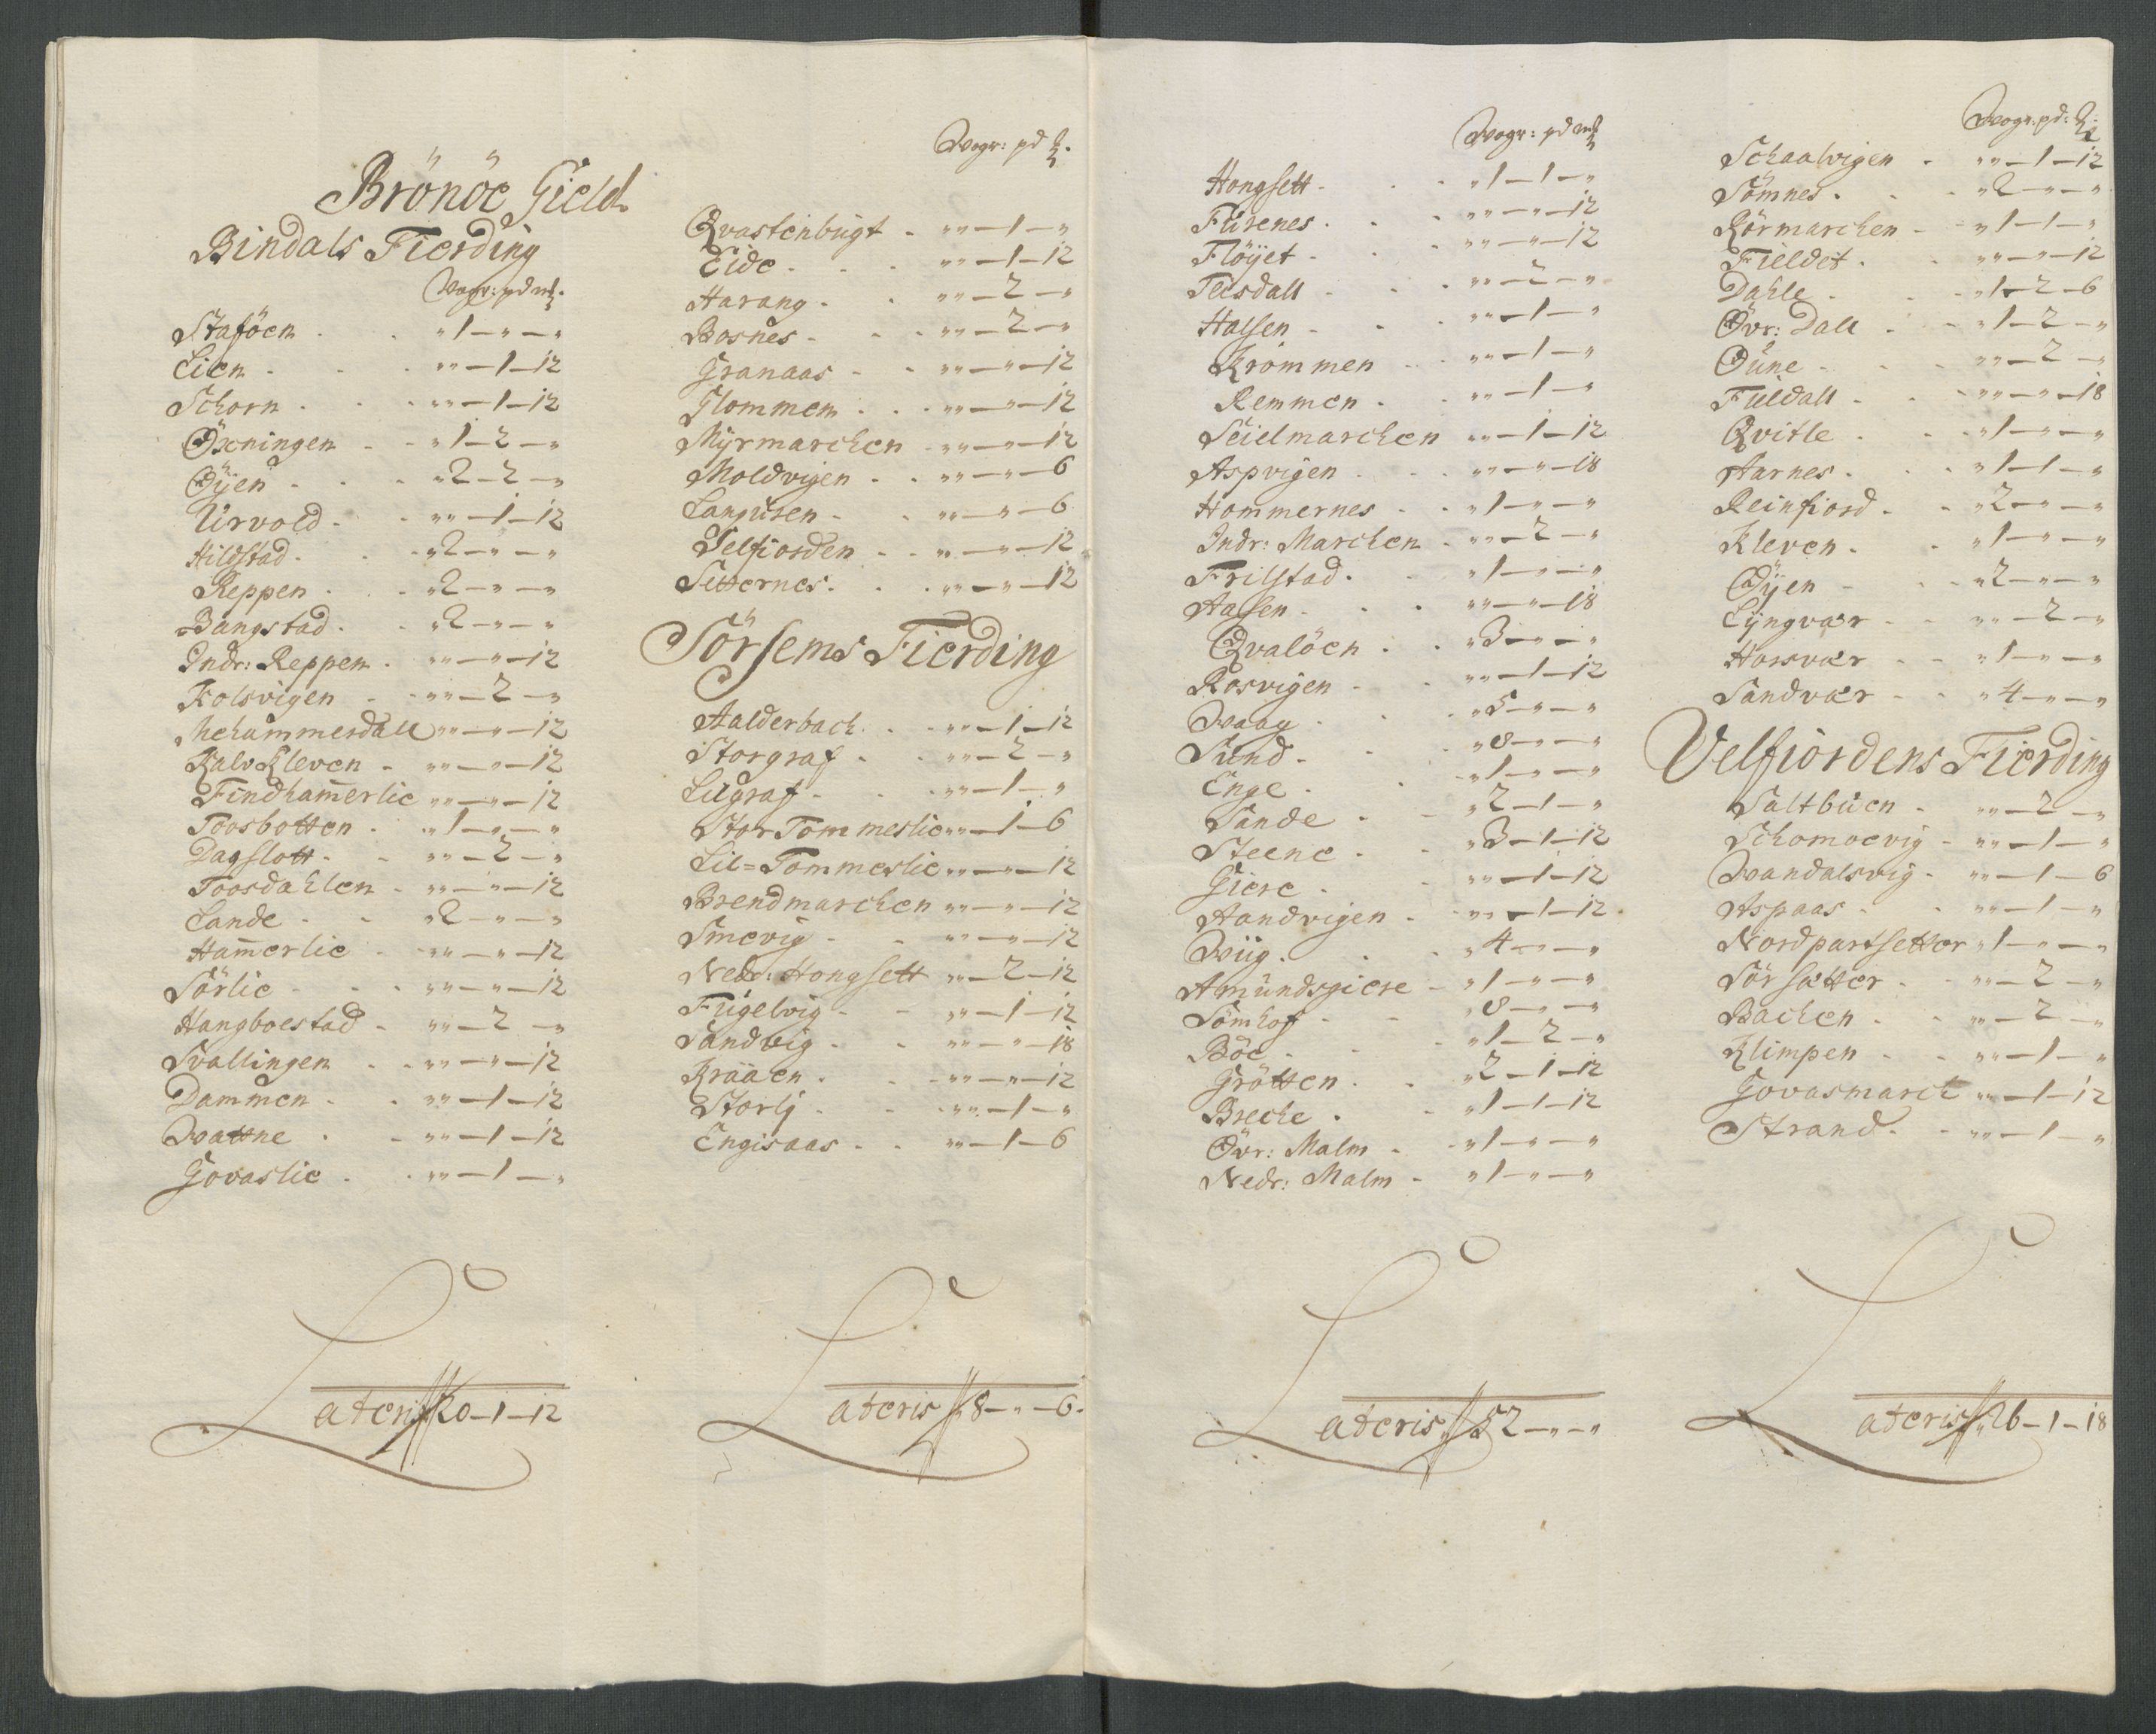 Brönöe Gield
Bindals Fierding
Wogr: pd mk.
Staföen . . „1-„-„
Lien . . . „„-1-12
Schorn . . . „„-1-12
Öxningen . . „1-2-„
Öyen . . . „2-2-„
Urvold . . „„-1-12
Hildstad . . „2-„-„
Reppen . . „2-„-„
Bangstad . . „2-„-„
Indr: Reppen . „„-„-12
Kolsvigen . . „„-2-„
Mehammerdall „„-„-12
Kalv Kleven . „„-„-12
Findham̅erlie „„-„-12
Toosbotten . „1-„-„
Dagslott . . „„-2-„
Toosdahlen . „„-„-12
Lande . . „2-„-„
Ham̅erlie . „„-„-12
Sörlie . . . „„-„-12
Hangboestad . „„-2-„
Svallingen . . „„-„-12
Dammen . . „„-1-12
Wattne . . „„-1-12
Govaslie . . „„-1-„
Lateris 20-1-12
Wogr: pd
Qvastenbugt . „„-1-„
Eide . . . „„-1-12
Harang . . „„-2-„
Bosnes . . . „„-2-„
Granaas . . „„-„-12
Flommen . . . „„-„-12
Myrmarchen . „„-„-12
Moldvigen . . „„-„-6
Langusen . . „„-„-6
Selfiorden . . „„-„-12
Setternes . . . „„-„-12
Sörsems Fierding
Aalderbach . . „„-1-12
Storgraf . . „„-2-„
Lilgraf . . . „„-1-„
Stor Tommeslie „„-1-6
Lil=Tommeslie „„-„-12
Brendmarchen „„-„-12
Smevig . . „„-„-12
Nedr: Hongsett „„-2-12
Fugelvig . . „„-1-12
Sandvig . . „„-„-18
Kraaen . . „„-„-12
Storlj . . . „„-1-„
Engisaas . . „„-1-6
Lateris 8-„-6.
Wogr: pd mk
Hongsett . . . „1-1-„
Furenes . . . „„-„-12
Flöyet . . . „„-„-12
Teisdall . . . „„-2-„
Halsen . . . „„-1-„
Krommen . „„-1-„
Remmen . . „„-1-„
Seielmarchen „„-1-12
Aspvigen . . . „„-„-18
Hommernes . . „1-„-„
Indr: Marchen . „„-2-„
Frilstad . . „1-„-„
Aasen . . . „„-„-18
Qvalöen . . „3-„-„
Rosvigen . . „„-1-12
Waag . . . „5-„-„
Sund . . . „8-„-„
Enge . . . „1-„-„
Sande . . „2-1-„
Steene . . „3-1-12
Giere . . „„-1-12
Aandvigen . „„-1-12
Wiig . . . „4-„-„
Amundsgiere . „1-„-„
Sömhof . . „8-„-„
Böe . . . „1-2-„
Grötten . . „2-1-12
Breche . . „1-1-12
Övr: Malm . „1-„-„
Nedr: Malm . „1-„-„
Lateris 52-„-„
Wogr: pd:
Schaalvigen . „„-1-12
Sömnes . . „2-„-„
Rörmarchen . „1-1-„
Fieldet . . „„-„-12
Dahle . . . „1-2-6
Övr: Dall . . „1-2-„
Oune . . . „„-2-„
Fueldall . . „„-„-18
Qvitle . . . „1-„-„
Harnes . . . „1-1-„
Reinfiord . . „2-„-„
Kleven . . „1-„-„
Öyen . . . „2-„-„
Lyngvær . . „„-2-„
Horsvær . . „1-„-„
Sandvær . . „4-„-„
Velfiordens Fierding
Saltbuen . „„-2-„
Schomoevig . „„-1-„
Wandalsvig . „„-1-6
Aspaas . . „„-1-„
Nordpartsetter „1-„-„
Sör Sætter . . „„-2-„
Bachen . . „„-2-„
Klimpen . . „„-1-„
Govasmarch „„-1-12
Strand . . „„-1-„
Lateris 26-1-18